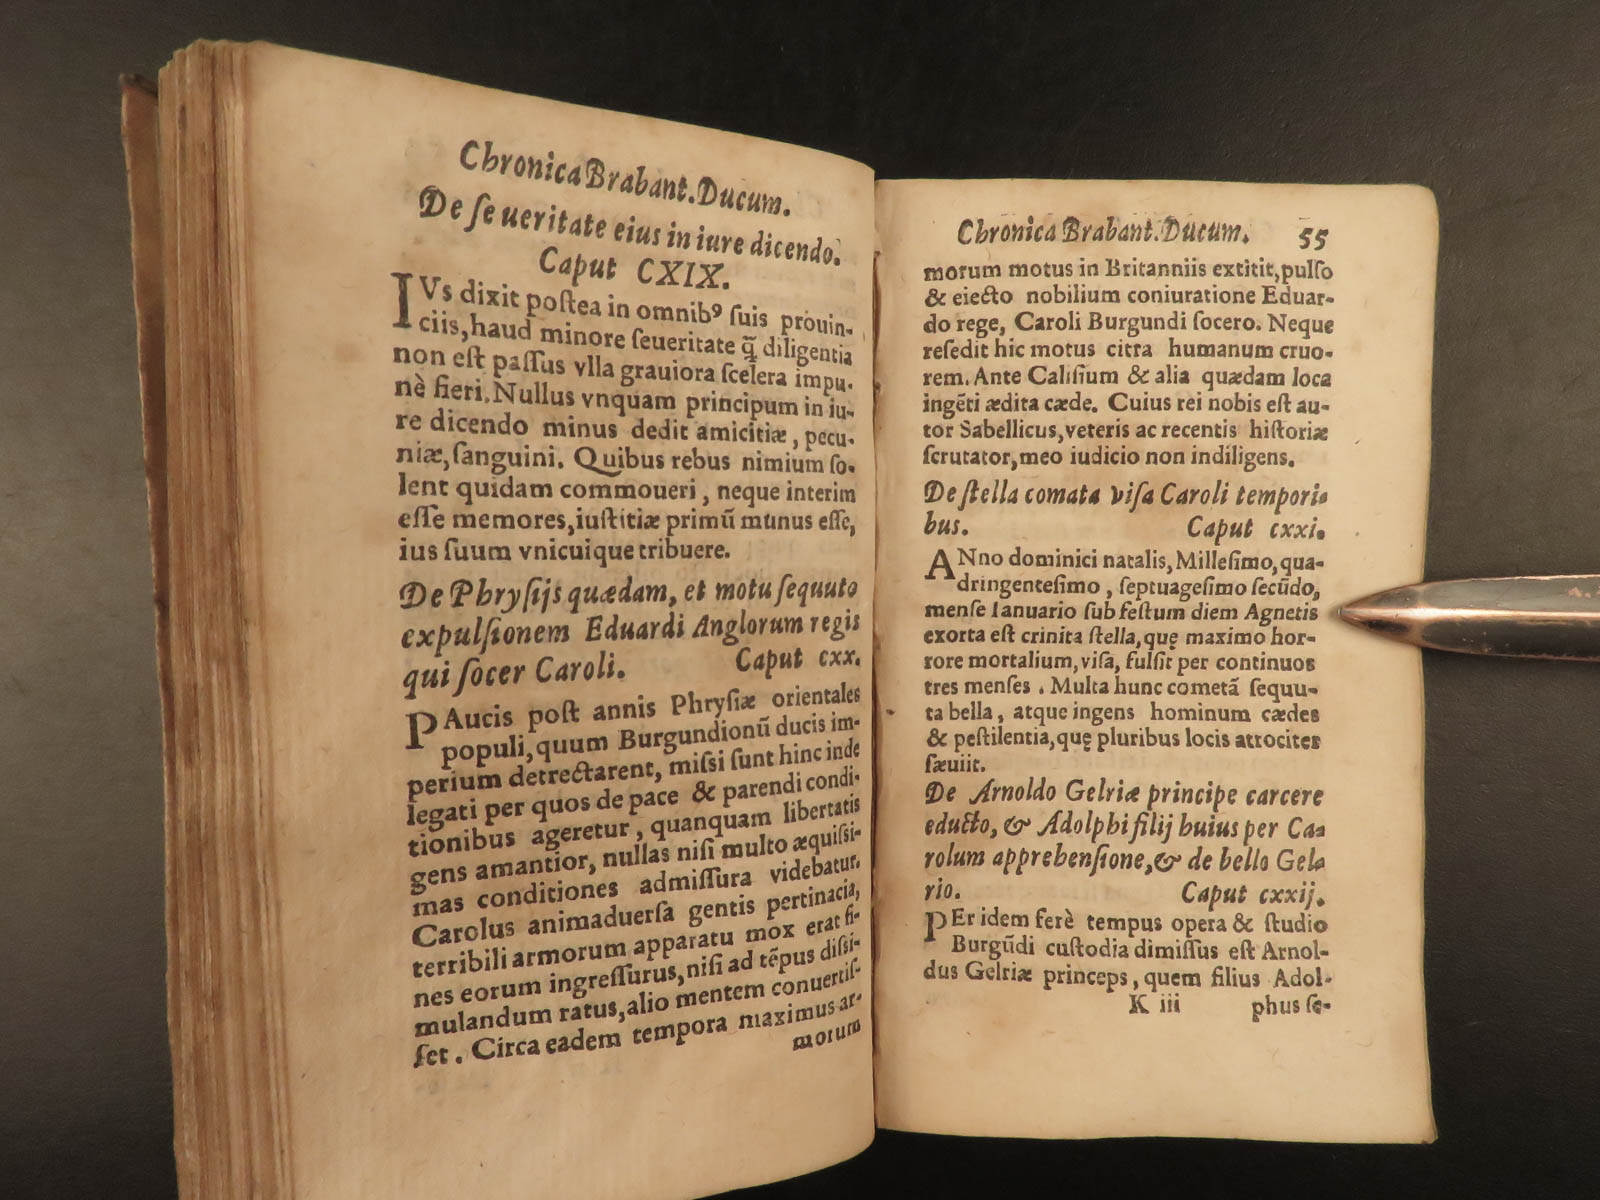 Chronica Brabant. Ducum.
De seueritate eius in iure dicendo.
Caput CXIX.
IVs dixit postea in omnibꝰ suis prouin-
ciis, haud minore seueritate q̃ diligentia
non est passus vlla grauiora scelera impu-
nè fieri. Nullus vnquam principum in iu-
re dicendo minus dedit amicitiæ, pecu-
niæ, sanguini. Quibus rebus nimium so-
lent quidam commoueri, neque interim
esse memores, iustitiæ primū munus esse,
ius suum vnicuique tribuere.
De Phrysijs quædam, et motu sequuto
expulsionem Eduardi Anglorum regis
qui socer Caroli. Caput cxx.
PAucis post annis Phrysiæ orientales
populi, quum Burgundionū ducis im-
perium detrectarent, missi sunt hinc inde
legati per quos de pace & parendi condi-
tionibus ageretur, quanquam libertatis
gens amantior, nullas nisi multo æquissi-
mas conditiones admissura videbatur.
Carolus animaduersa gentis pertinacia,
terribili armorum apparatu mox erat fi-
nes eorum ingressurus, nisi ad tēpus dissi-
mulandum ratus, alio mentem conuertis-
set. Circa eadem tempora maximus ar-
morum
Chronica Brabant. Ducum. 55
morum motus in Britanniis extitit, pulso
& eiecto nobilium coniuratione Eduar-
do rege, Caroli Burgundi socero. Neque
resedit hic motus citra humanum cruo-
rem. Ante Calisium & alia quædam loca
ingēti ædita cæde. Cuius rei nobis est au-
tor Sabellicus, veteris ac recentis historiæ
scrutator, meo iudicio non indiligens.
De stella comata visa Caroli tempori-
bus. Caput cxxi.
ANno dominici natalis, Millesimo, qua-
dringentesimo, septuagesimo secūdo,
mense Ianuario sub festum diem Agnetis
exorta est crinita stella, quę maximo hor-
rore mortalium, visa, fulsit per continuos
tres menses. Multa hunc cometā sequu-
ta bella, atque ingens hominum cædes
& pestilentia, quę pluribus locis atrociter
sæuiit.
De Arnoldo Gelriæ principe carcere
educto, & Adolphi filij huius per Ca-
rolum apprehensione, & de bello Gel-
rio. Caput cxxij.
PEr idem ferè tempus opera & studio
Burgūdi custodia dimissus est Arnol-
dus Gelriæ princeps, quem filius Adol-
K iii phus se-